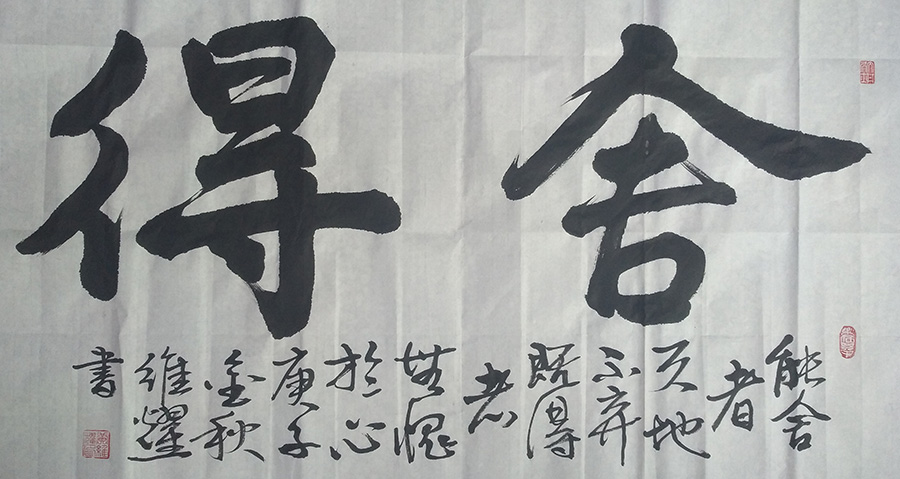 舍得
能舍
者
天地
不弃
既得
者
無愧
於心
庚子
金秋
維耀
書